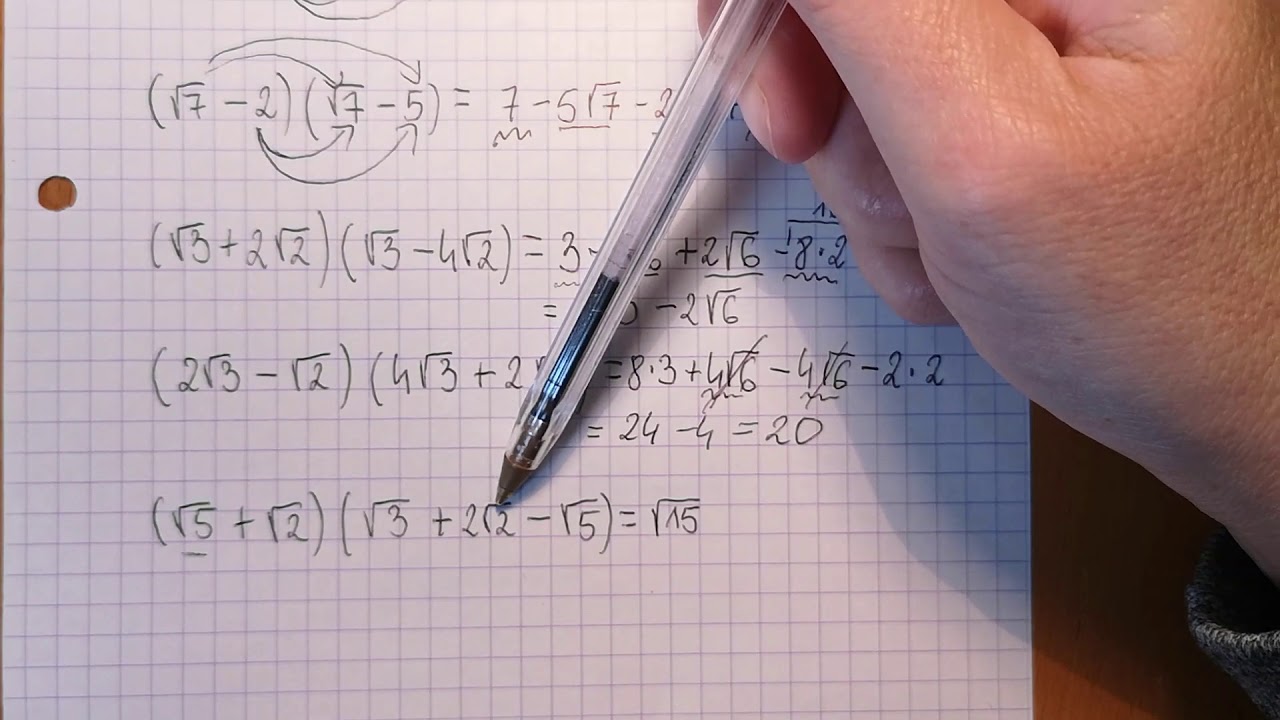 (√7 - 2)(√7 - 5) = 7 - 5√7 - 2
(√3 + 2√2)(√3 - 4√2) = 3 - + 2√6 - 8·2
= - 2√6
(2√3 - √2)(4√3 + 2√ = 8·3 + 4√6 - 4√6 - 2·2
= 24 - 4 = 20
(√5 + √2)(√3 + 2√2 - √5) = √15